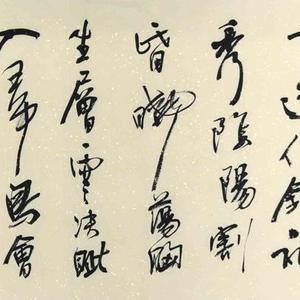 造化鍾神
秀陰陽割
昏曉蕩胸
生層雲決眥
入歸鳥會